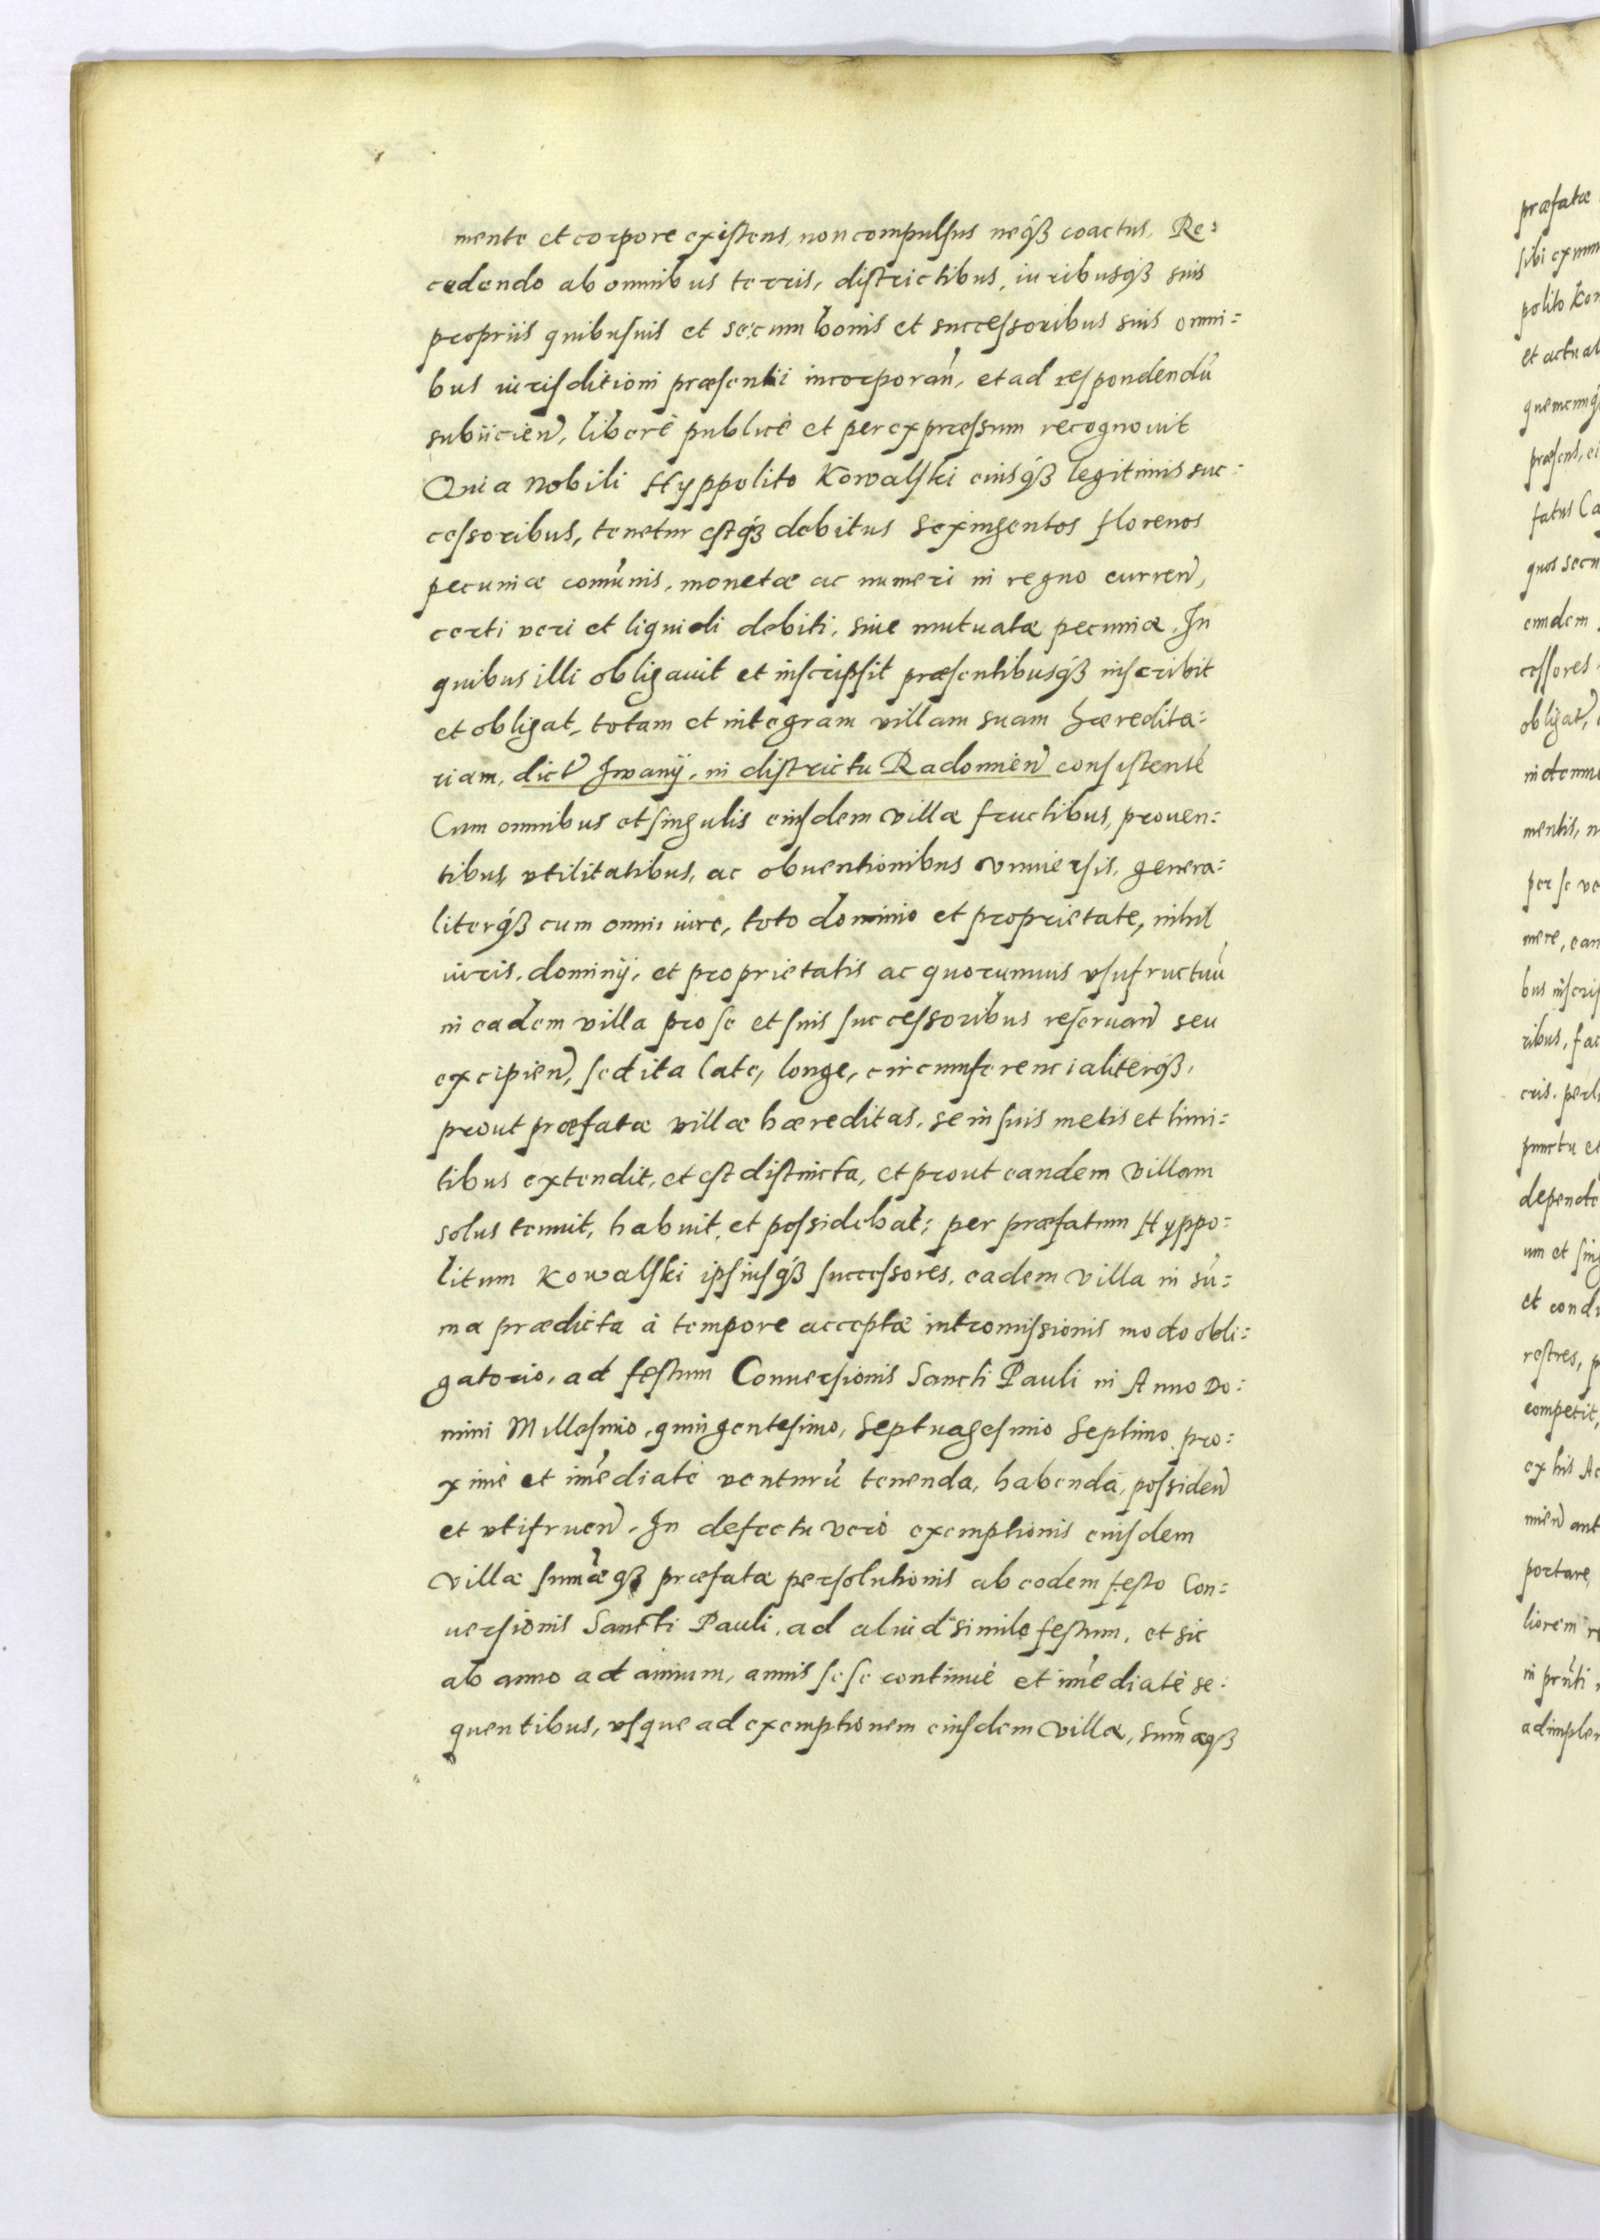 mente et corpore existens, non compulsus neq́ꝫ coactus, Re:
cedendo ab omnibus terris, districtibus, iuribusq́ꝫ suis
propriis quibusuis et secum bonis et successoribus suis omni:
bus iurisditioni præsentii incorporañ, et ad respondendũ
subiicieñ, liberè publicè et per expressum recognouit
Quia Nobili Hyppolito Kowalski eiusq́ꝫ legitimis suc:
cessoribus, tenetur estq́ꝫ debitus Sexingentos florenos
pecuniæ comũnis, monetæ ac numeri in regno curreñ,
certi veri et liquidi debiti, siue mutuatæ pecuniæ. In
quibus illi obligauit et inscripsit præsentibusq́ꝫ inscribit
et obligat, totam et integram villam suam hæredita:
riam, dict̃ Jwanij, in districtu Radomieñ consistentẽ
Cum omnibus et singulis eiusdem villæ fructibus, prouen:
tibus, vtilitatibus, ac obuentionibus vniuersis, genera:
literq́ꝫ cum omni iure, toto dominio et proprietate, nihil
iuris, dominij, et proprietatis ac quorumuis vsufructuũ
in eadem villa pro se et suis successoribus reseruañ seu
excipieñ, sed ita late, longe, circumferencialiterq́ꝫ,
prout præfatæ villæ hæreditas, se in suis metis et limi:
tibus extendit, et est distincta, et prout eandem villam
solus tenuit, habuit, et possidebat; per præfatum Hyppo:
litum Kowalski ipsiusq́ꝫ successores, eadem villa in sũ:
ma prædicta à tempore acceptæ intromissionis modo obli:
gatorio, ad festum Conuersionis Sancti Pauli in Anno Do:
mini Millesimo, quingentesimo, Septuagesimo Septimo pro:
ximè et im̃ediatè venturũ tenenda, habenda, possideñ
et vtifrueñ. In defectu verò exemptionis eiusdem
villæ sum̃æqꝫ præfatæ persolutionis ab eodem festo Con:
uersionis Sancti Pauli, ad aliud simile festum, et sic
ab anno ad annum, annis sese continuè et im̃ediatè se:
quentibus, vsque ad exemptionem eiusdem villæ, sum̃æqꝫ